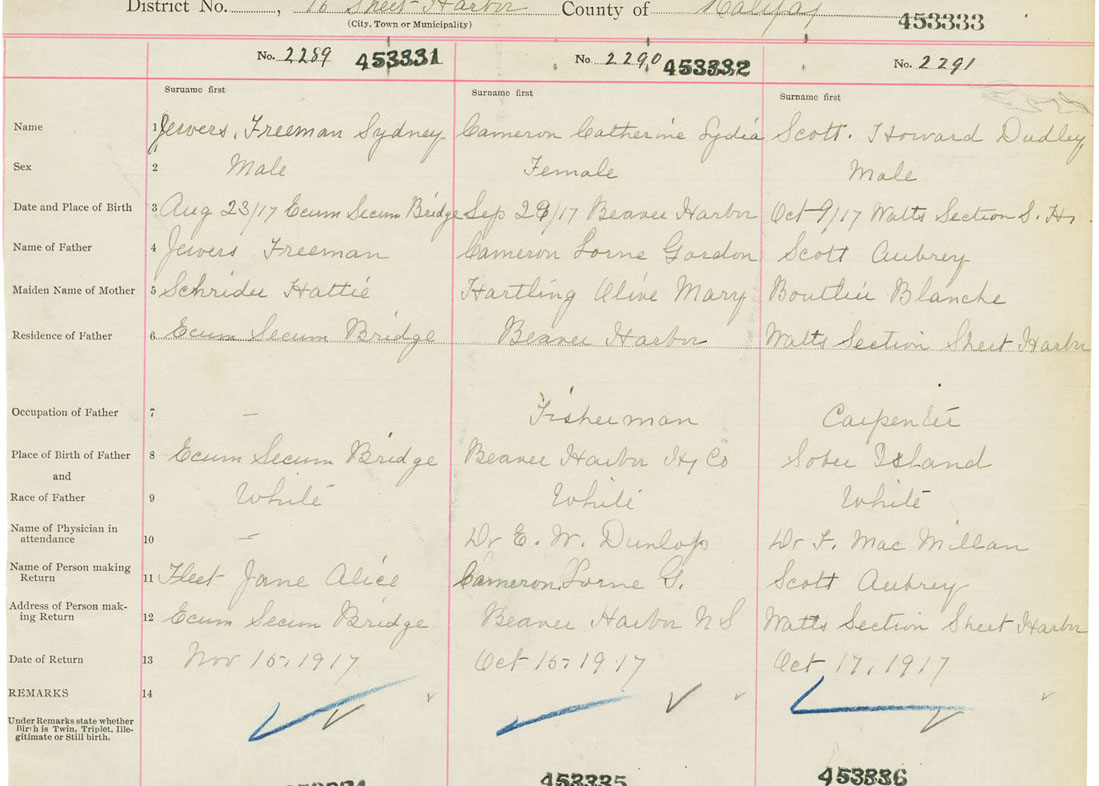 District No. , 16 Sheet Harbor County of Halifax
(City, Town or Municipality)
453333
No. 2289 453331 No 2290 453332 No. 2291
Surname first Surname first Surname first
Name 1 Jewers, Freeman Sydney Cameron Catherine Lydia Scott. Howard Dudley
Sex 2 Male Female Male
Date and Place of Birth 3 Aug 23/17 Ecum Secum Bridge Sep /17 Beaver Harbor Oct 9/17 Watts Section S. H.
Name of Father 4 Jewers Freeman Cameron Lorne Gordon Scott Aubrey
Maiden Name of Mother 5 Hattie Hartling Olive Mary Blanche
Residence of Father 6 Ecum Secum Bridge Beaver Harbor Watts Section Sheet Harbor
Occupation of Father 7 — Fisherman Carpenter
Place of Birth of Father 8 Ecum Secum Bridge Beaver Harbor Hx Co Sober Island
and
Race of Father 9 White White White
Name of Physician in
attendance 10 — Dr E. W. Dunlop Dr F. Mac Millan
Name of Person making
Return 11 Fleet Jane Alice Cameron, Lorne G. Scott Aubrey
Address of Person mak-
ing Return 12 Ecum Secum Bridge Beaver Harbor N S Watts Section Sheet Harbor
Date of Return 13 Nov 15, 1917 Oct 15, 1917 Oct 17, 1917
REMARKS 14
Under Remarks state whether
Birth is Twin, Triplet, Ille-
gitimate or Still birth.
453335 453336